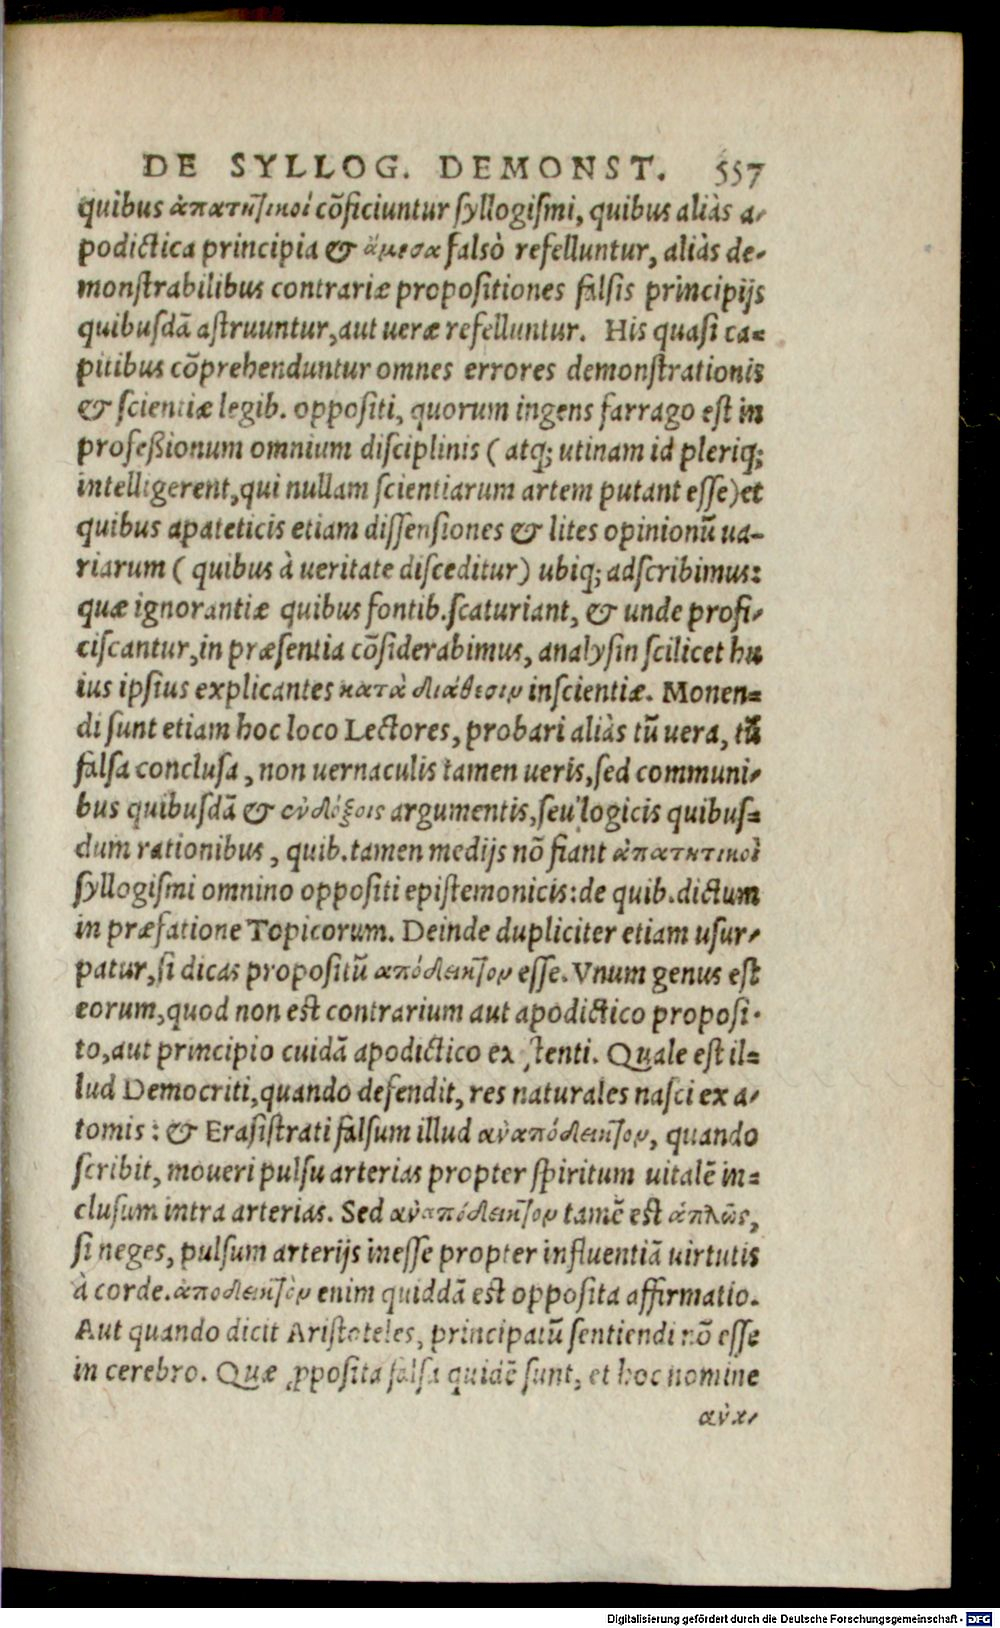 DE SYLLOG. DEMONST. 557
quibus ἀπατητικοί cõficiuntur ſyllogiſmi, quibus aliàs a-
podictica principia & ἄμεσα falsò refelluntur, aliàs de-
monſtrabilibus contrariæ propoſitiones falſis principijs
quibuſdã aſtruuntur, aut ueræ refelluntur. His quaſi ca-
pitibus cõprehenduntur omnes errores demonſtrationis
& ſcientiæ legib. oppoſiti, quorum ingens farrago eſt in
profeßionum omnium diſciplinis ( atq; utinam id pleriq;
intelligerent, qui nullam ſcientiarum artem putant eſſe) et
quibus apateticis etiam diſſenſiones & lites opinionũ ua-
riarum ( quibus à ueritate diſceditur) ubiq; adſcribimus:
quæ ignorantiæ quibus fontib. ſcaturiant, & unde profi-
ciſcantur, in præſentia cõſiderabimus, analyſin ſcilicet hu
ius ipſius explicantes κατὰ διάθεσιν inſcientiæ. Monen-
di ſunt etiam hoc loco Lectores, probari aliàs tũ uera, tũ
falſa concluſa, non uernaculis tamen ueris, ſed communi-
bus quibuſdã & ἐνδόξοις argumentis, ſeu logicis quibuſ-
dum rationibus, quib. tamen medijs nõ fiant ἀπατητικοὶ
ſyllogiſmi omnino oppoſiti epiſtemonicis: de quib. dictum
in præfatione Topicorum. Deinde dupliciter etiam uſur-
patur, ſi dicas propoſitũ ἀπόδεικτον eſſe. Vnum genus eſt
eorum, quod non eſt contrarium aut apodictico propoſi-
to, aut principio cuidã apodictico ex ſtenti. Quale eſt il-
lud Democriti, quando defendit, res naturales naſci ex a-
tomis: & Eraſiſtrati falſum illud ἀναπόδεικτον, quando
ſcribit, moueri pulſu arterias propter ſpiritum uitalẽ in-
cluſum intra arterias. Sed ἀναπόδεικτον tamẽ eſt ἁπλῶς,
ſi neges, pulſum arterijs ineſſe propter influentiã uirtutis
à corde. ἀποδεικτὸν enim quiddã eſt oppoſita affirmatio.
Aut quando dicit Ariſtoteles, principatũ ſentiendi nõ eſſe
in cerebro. Quæ ꝓpoſita falſa quidẽ ſunt, et hoc nomine
ἀνα-
Digitalisierung gefördert durch die Deutsche Forschungsgemeinschaft - DFG